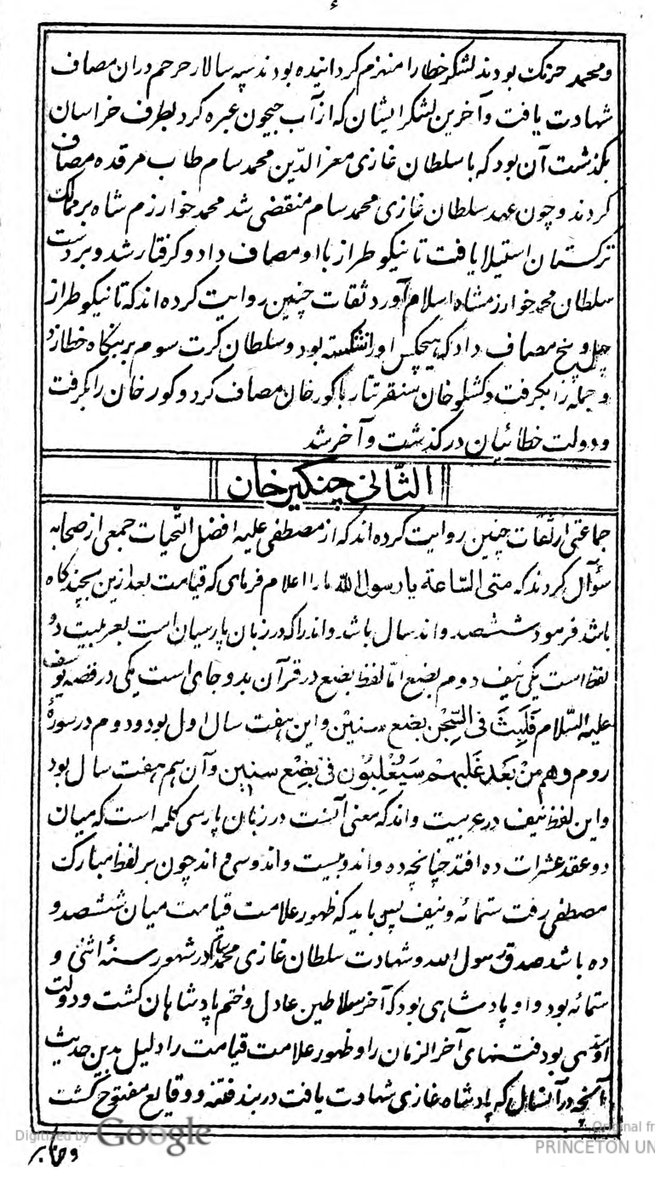 ومحمد حربک بودند لشکر خطا را منهزم کردانیده بودند سپه سالار حرحم دران مصاف
شهادت یافت وآخرین لشکر ایشان که از آب جیحون عبره کرد بطرف خراسان
بگذشت آن بود که با سلطان غازی معزالدّین محمد سام طاب مرقده مصاف
کردند وچون عهد سلطان غازی محمد سام منقضی شد محمد خوارزم شاه بر ممالک
ترکستان استیلا یافت تا نیکو طراز با او مصاف داد و گرفتار شد و بر دست
سلطان محمد خوارزمشاه اسلام آورد ثقات چنین روایت کرده اند که تا نیکو طراز
چهل و پنج مصاف داد که هیچکس او را نشکسته بود و سلطان کرت سوم بر بنگاه خطا زد
و جمله را بگرفت و کشلو خان سنقر تتار با کور خان مصاف کرد و کور خان را بگرفت
و دولت خطائیان در گذشت و آخر شد
الثّانی چنگیز خان
جماعتی از ثقات چنین روایت کرده اند که از مصطفی علیه افضل التّحیات جمعی از صحابه
سؤال کردند که متی السّاعة یا رسول الله ما را اعلام فرمای که قیامت بعد ازین بچند گاه
باشد فرمود ششصد و اند سال باشد و اند را که در زبان پارسیان است بعربیت دو
لفظ است یکی نیف دوم بضع امّا لفظ بضع در قرآن بدو جای است یکی در قصه یوسف
علیه السّلام فَلَبِثَ فی السِّجْنِ بضع سنین و این هفت سال اول بود و دوم در سورۀ
روم وهم مِنْ بَعْدِ غَلَبِهِمْ سَیَغْلِبُوْنَ فی بِضْعِ سنین و آن هم هفت سال بود
و این لفظ نیف در عربیت و اند که معنی آنست در زبان پارسی کلمه است که میان
دو عقد عشرات ده افتد چنانچه ده و اند و بیست و اند و سی و اند چون بر لفظ مبارک
مصطفی رفت ستمائه و نیف پس باید که ظهور علامت قیامت میان ششصد و
ده باشد صدق رسول الله و شهادت سلطان غازی محمد سام در شهور سنۀ اثنی و
ستمائه بود و او پادشاهی بود که آخر سلاطین عادل و ختم پادشاهان گشت و دولت
او سدی بود فتنهای آخر الزمان را و ظهور علامت قیامت را دلیل بدین حدیث
آنچه در آنسال که پادشاه غازی شهادت یافت در بند فتنه و وقایع مفتوح گشت
Digitized by Google
Original fr
PRINCETON UN